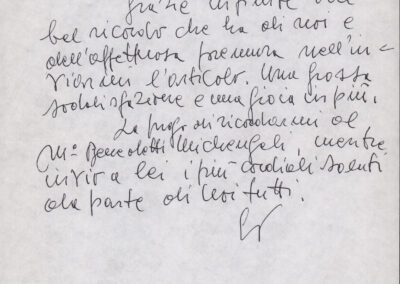 Grazie infinite del
bel ricordo che ha di noi e
dell'affettuosa premura nell'in=
viarmi l'articolo. Una grossa
soddisfazione e una gioia in più.
La prego di ricordarmi al
M.º Benedetti Michengeli, mentre
invio a lei i più cordiali saluti
da parte di noi tutti.